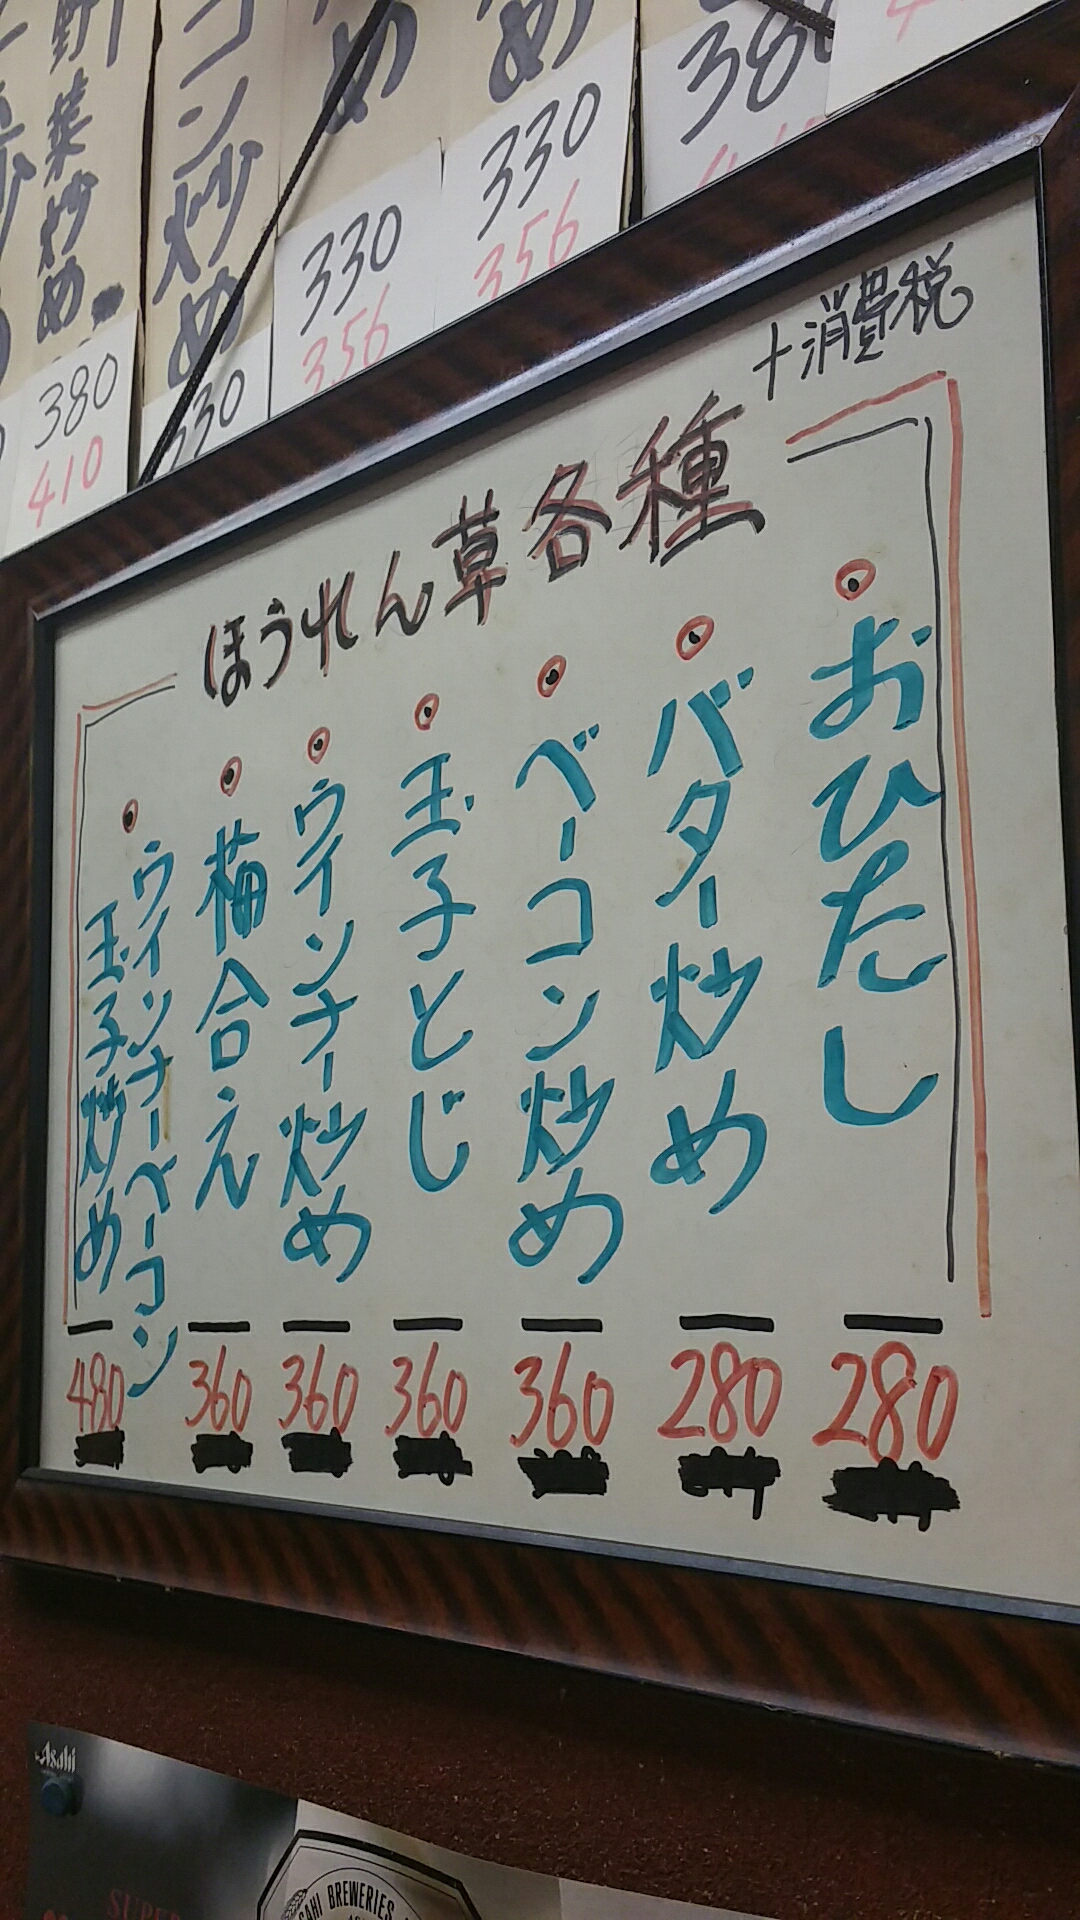 野菜炒め
380
410
コン炒め
330
め
330
356
め
330
356
380
+消費税
ほうれん草各種
おひたし
280
バター炒め
280
ベーコン炒め
360
玉子とじ
360
ウインナー炒め
360
梅合え
360
ウインナーベーコン
玉子炒め
480
Asahi
SUPER
ASAHI BREWERIES